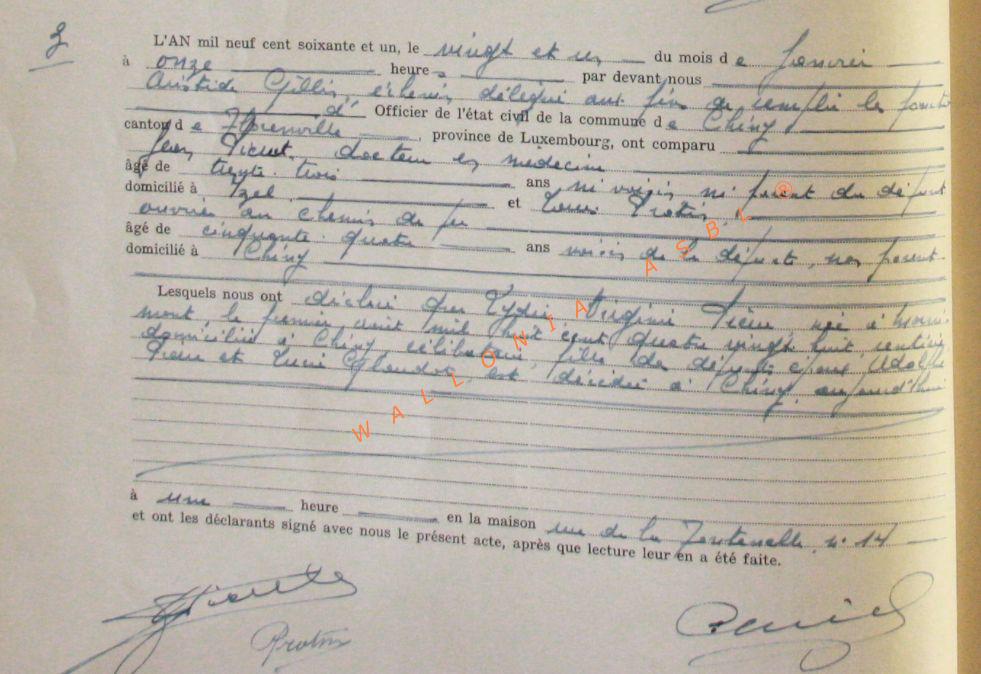 3
L'AN mil neuf cent soixante et un, le vingt et un du mois de Janvier
à onze heures par devant nous
Aristide Gillin, échevin délégué aux fins de remplir les fonctions
d' Officier de l'état civil de la commune de Chiny
canton de Florenville, province de Luxembourg, ont comparu
Jean docteur en médecine
âgé de trente trois ans ni voisin ni parent du défunt
domicilié à Izel et Louis Protin
ouvrier au chemin de fer
âgé de cinquante quatre ans voisin de la défunte, non parent
domicilié à Chiny
Lesquels nous ont déclaré que Lydie Virginie née à
mont le premier août mil huit cent quatre vingt huit, rentière
domiciliée à Chiny célibataire fille des défunts époux Adolphe
et Lucie est décédée à Chiny, aujourd'hui
à une heure en la maison rue de la Fontenelle, n° 14
et ont les déclarants signé avec nous le présent acte, après que lecture leur en a été faite.
Protin
WALLONIA ASBL ®